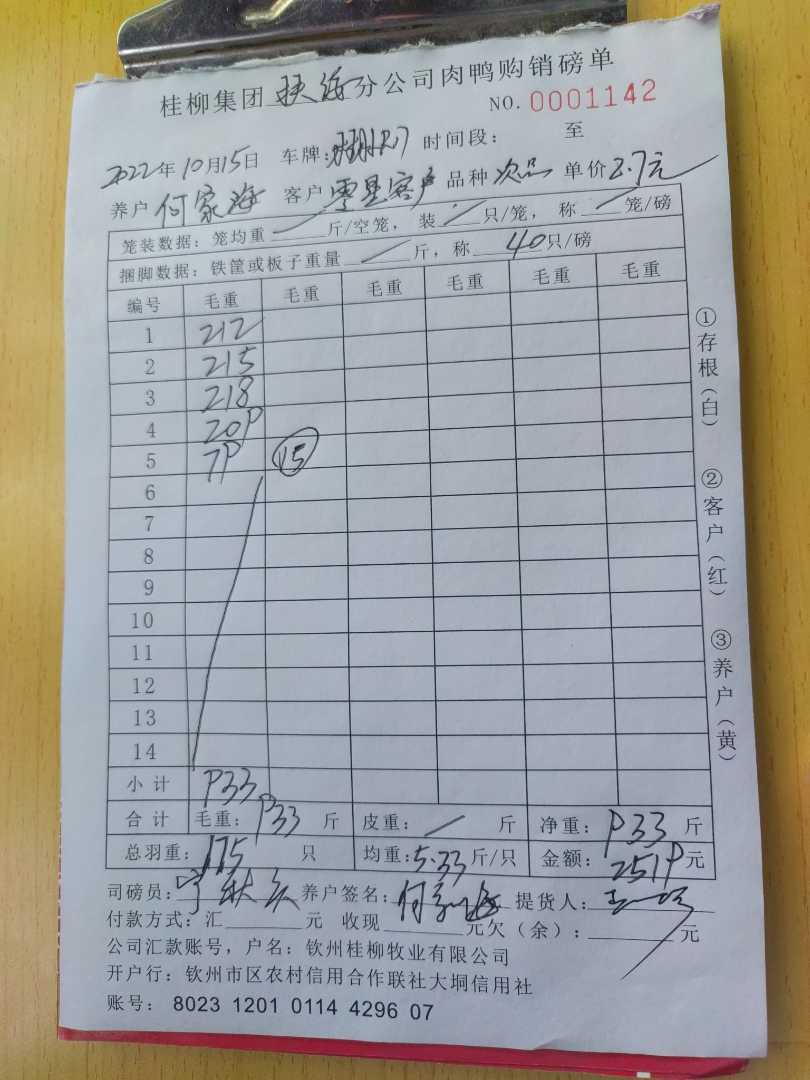 桂柳集团 分公司肉鸭购销磅单
NO. 0001142
2022年10月15日 车牌: 时间段: 至
养户 何家海 客户 零星客户 品种 次品 单价 2.7元
笼装数据: 笼均重 / 斤/空笼, 装 / 只/笼, 称 / 笼/磅
捆脚数据: 铁筐或板子重量 / 斤, 称 40只/磅
编号 毛重 毛重 毛重 毛重 毛重 毛重
1 212
2 215
3 218
4 209
5 79 15
6
7
8
9
10
11
12
13
14
小计 933
合计 毛重: 933 斤 皮重: / 斤 净重: 933 斤
总羽重: 175 只 均重: 5.33 斤/只 金额: 2519 元
司磅员: 养户签名: 何家海 提货人:
付款方式: 汇 元 收现 元欠(余): 元
公司汇款账号, 户名: 钦州桂柳牧业有限公司
开户行: 钦州市区农村信用合作联社大垌信用社
账号: 8023 1201 0114 4296 07
①存根(白)
②客户(红)
③养户(黄)